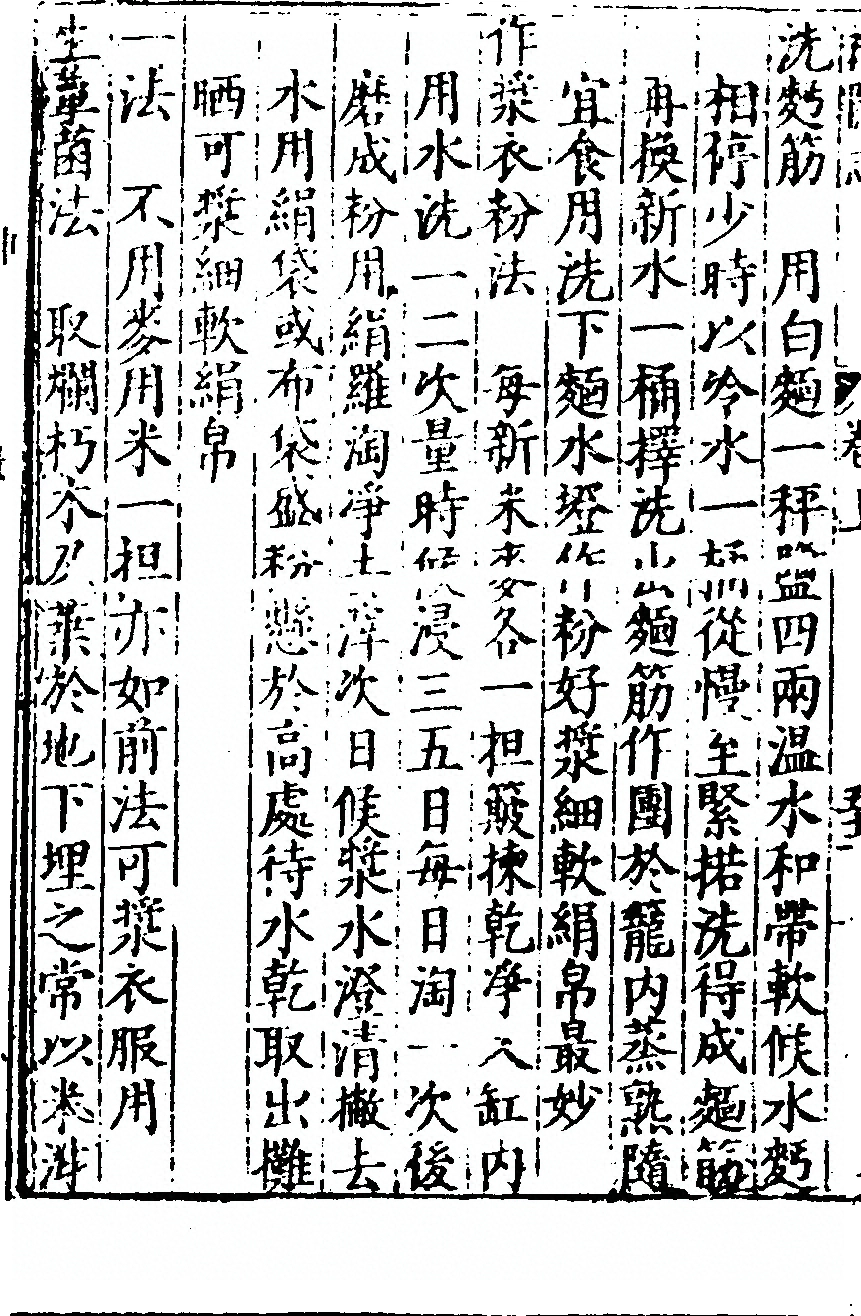 洗麪筋　用白麵一秤鹽四兩温水和帶軟候水麪
相停少時以冷水一　從慢至緊掿洗得成麵筋
再換新水一桶擇洗出麵筋作團於籠内蒸熟隨
宜食用洗下麵水澄作粉好漿細軟絹帛最妙
作漿衣粉法　每新米麥各一担簸揀乾净入缸内
用水洗一二次量時候浸三五日每日淘一次後
磨成粉用絹羅淘净土滓次日候漿水澄清撇去
水用絹袋或布袋盛粉懸於高處待水乾取出攤
晒可漿細軟絹帛
一法　不用麥用米一担亦如前法可漿衣服用
生蕈菌法　取爛朽木及葉於地下埋之常以米泔